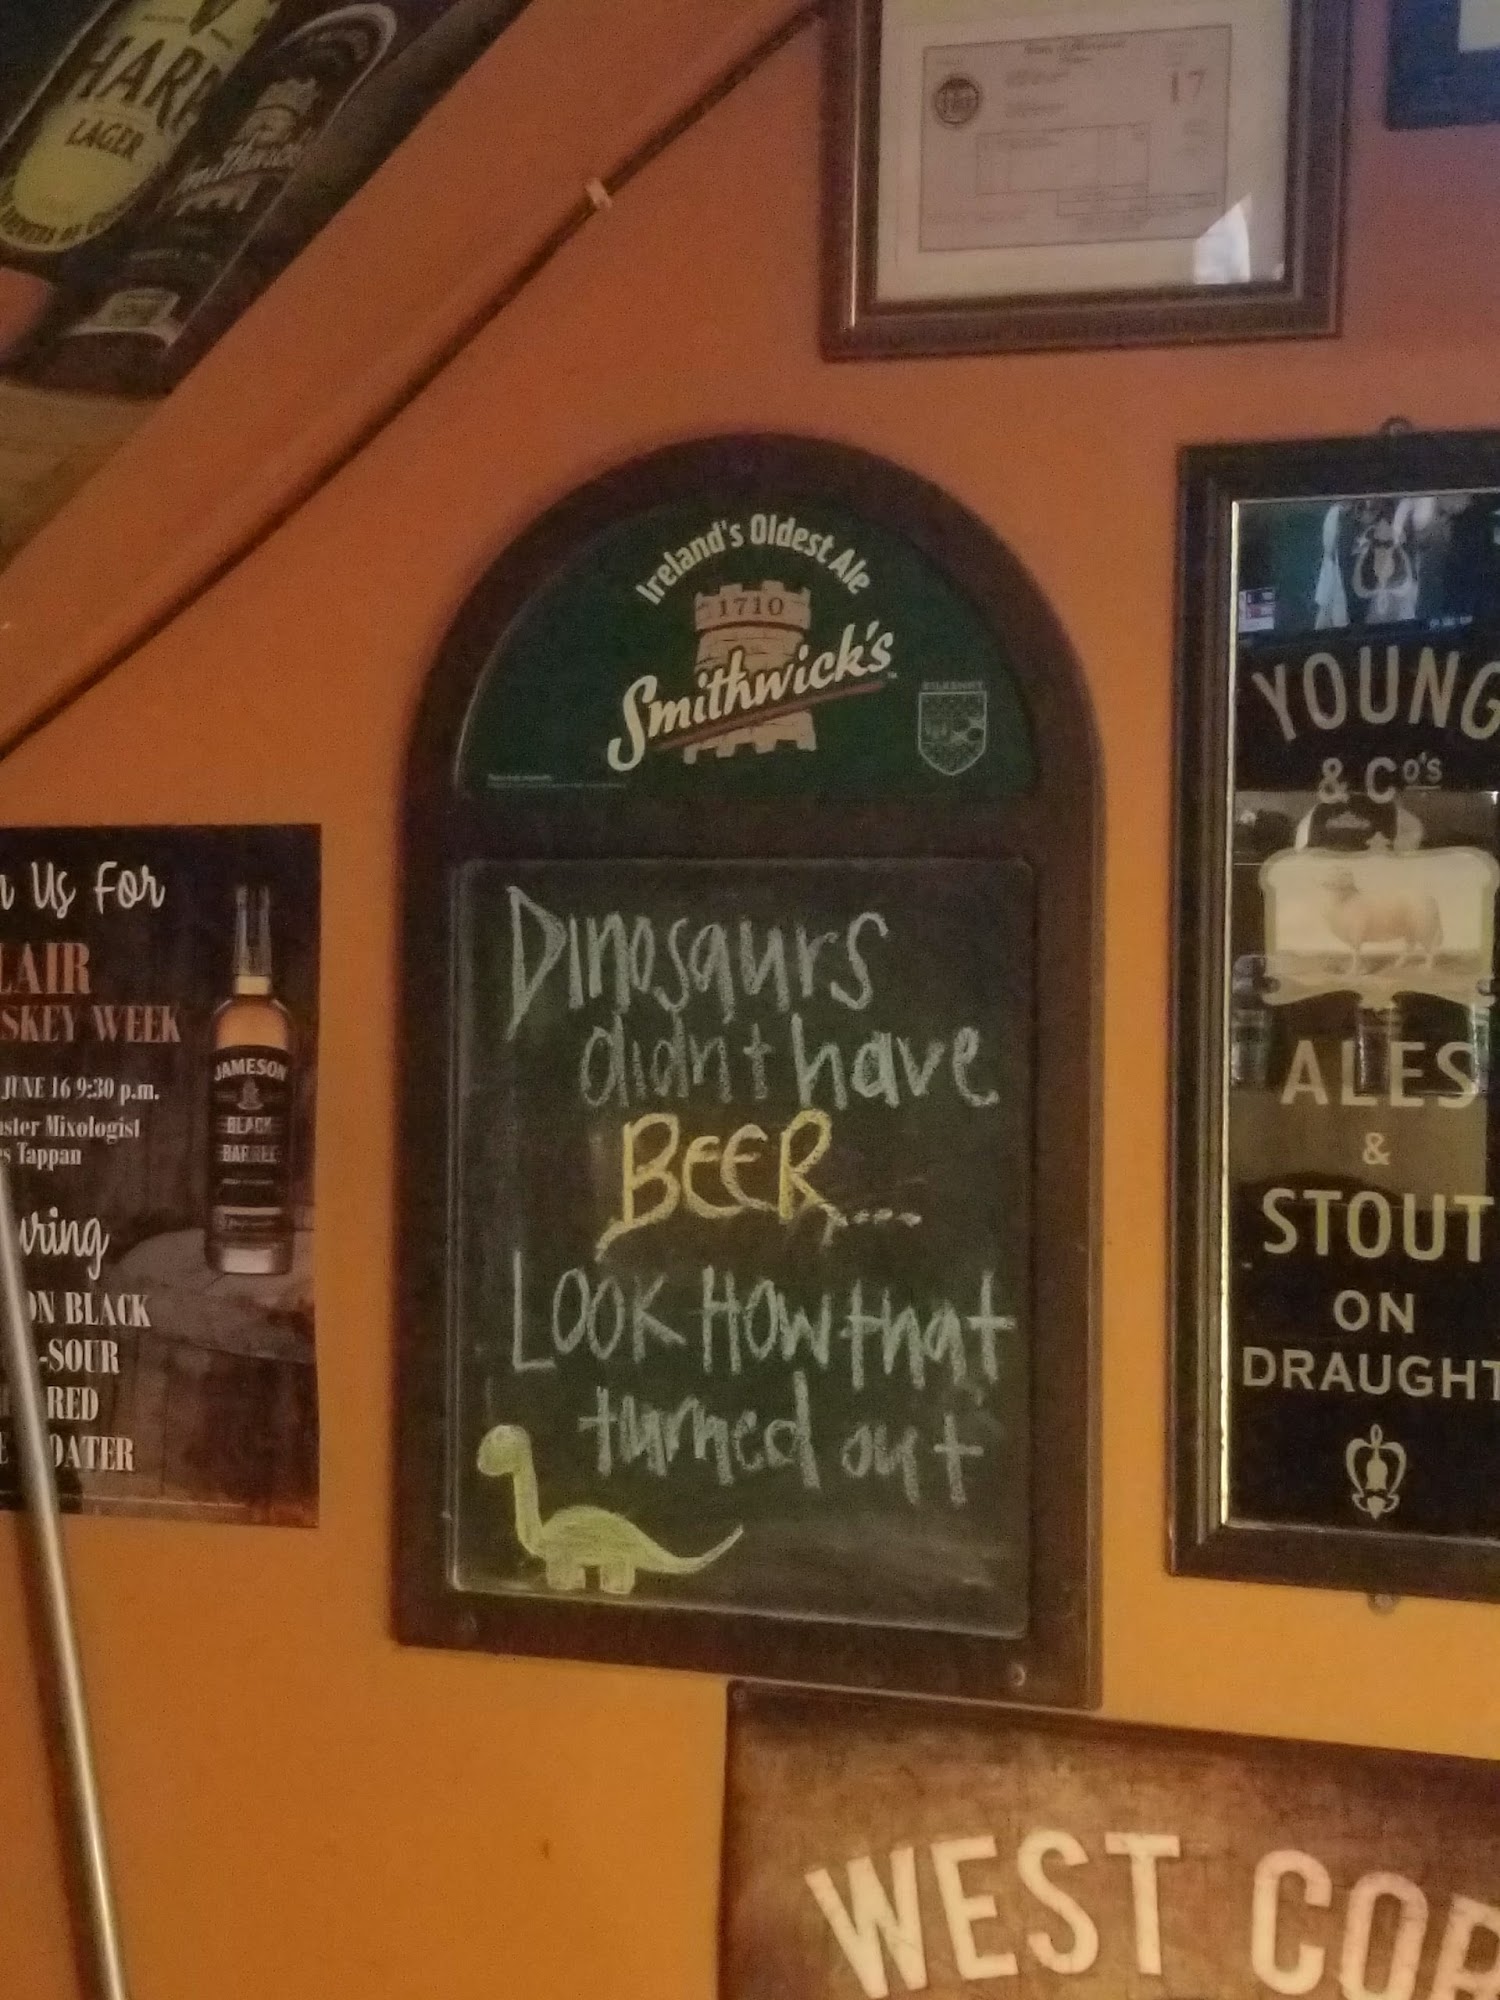 HARP
LAGER
Smithwick's
17
Ireland's Oldest Ale
1710
Smithwick's
KILKENNY
Dinosaurs
didn't have
BEER....
Look How that
turned out
Us For
LAIR
SKEY WEEK
JUNE 16 9:30 p.m.
Mixologist
Tappan
uring
ON BLACK
-SOUR
RED
OATER
JAMESON
BLACK
BARREL
YOUNG
& Co's
ALES
&
STOUT
ON
DRAUGHT
WEST COR